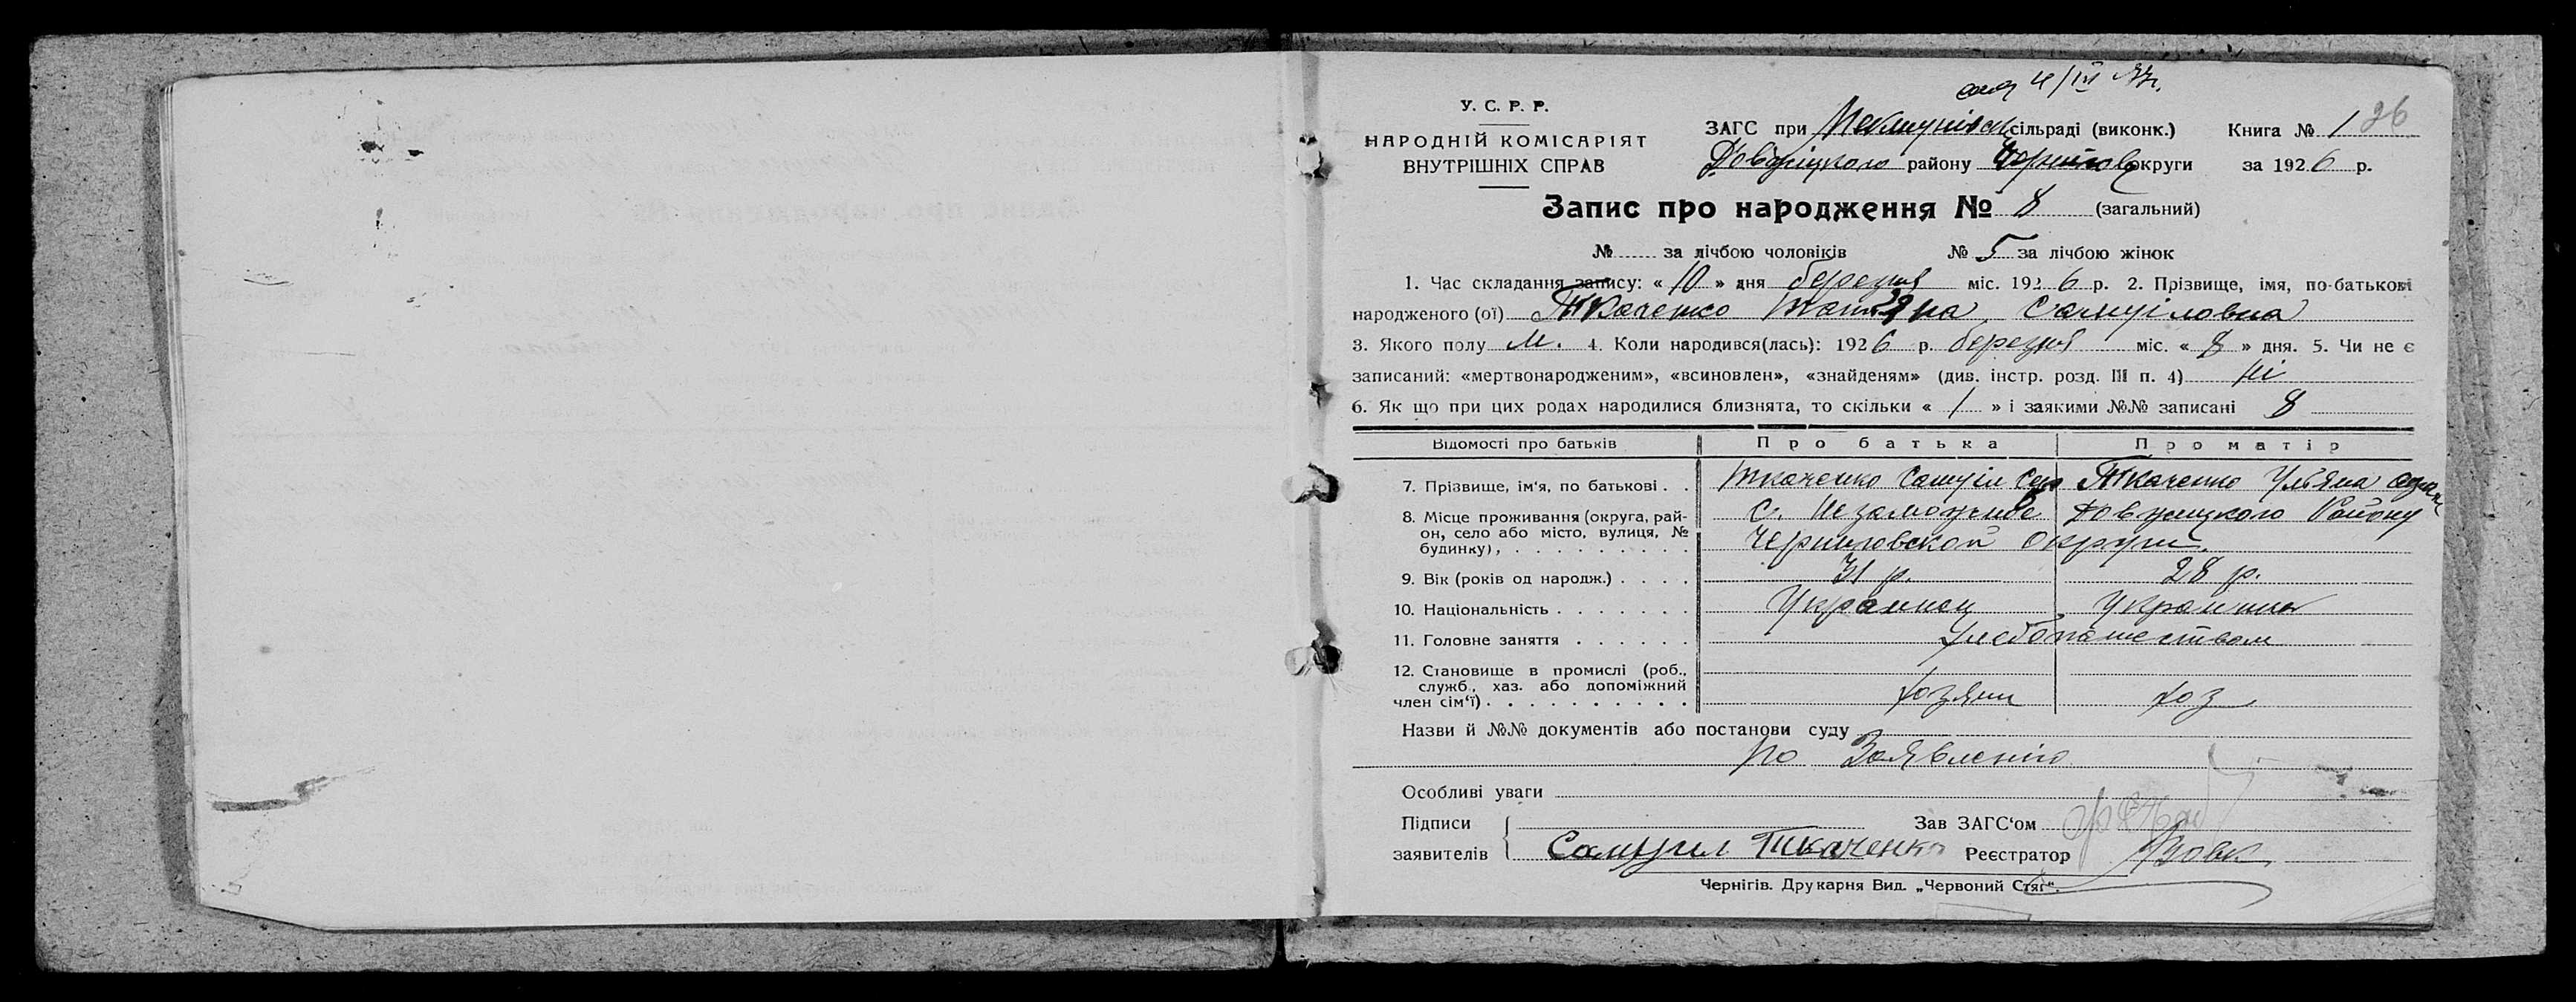 4/III
У. С. Р. Р.
НАРОДНІЙ КОМІСАРІЯТ
ВНУТРІШНІХ СПРАВ
ЗАГС при сільраді (виконк.) Книга № 1 26
району округи за 1926 р.
Запис про народження № 8 (загальний)
№ за лічбою чоловіків № 5 за лічбою жінок
1. Час складання запису: « 10 » дня березня міс. 1926 р. 2. Прізвище, імя, по-батькові
народженого (ої) Ткаченко Самуіловна
3. Якого полу М. 4. Коли народився(лась): 1926 р. березня міс. « 8 » дня. 5. Чи не є
записаний: «мертвонародженим», «всиновлен», «знайденям» (див. інстр. розд. III п. 4) Ні
6. Як що при цих родах народилися близнята, то скільки « 1 » і заякими №№ записані 8
Відомості про батьків Про батька Про матір
7. Прізвище, ім'я, по батькові Ткаченко Самуіл Ткаченко Уляна
8. Місце проживання (округа, рай-
он, село або місто, вулиця, №
будинку), с. Незаможное Району
Черниговской округи.
9. Вік (років од народж.) 31 р. 28 р.
10. Національність Украинец Украинка
11. Головне заняття Хлебопашеством
12. Становище в промислі (роб.,
служб., хаз. або допоміжний
член сім'ї) хозяин хоз
Назви й №№ документів або постанови суду
по Заявлению
Особливі уваги
Підписи Зав ЗАГС'ом
заявителів Самуил Ткаченко Реєстратор Вовк
Чернігів. Друкарня Вид. „Червоний Стяг".